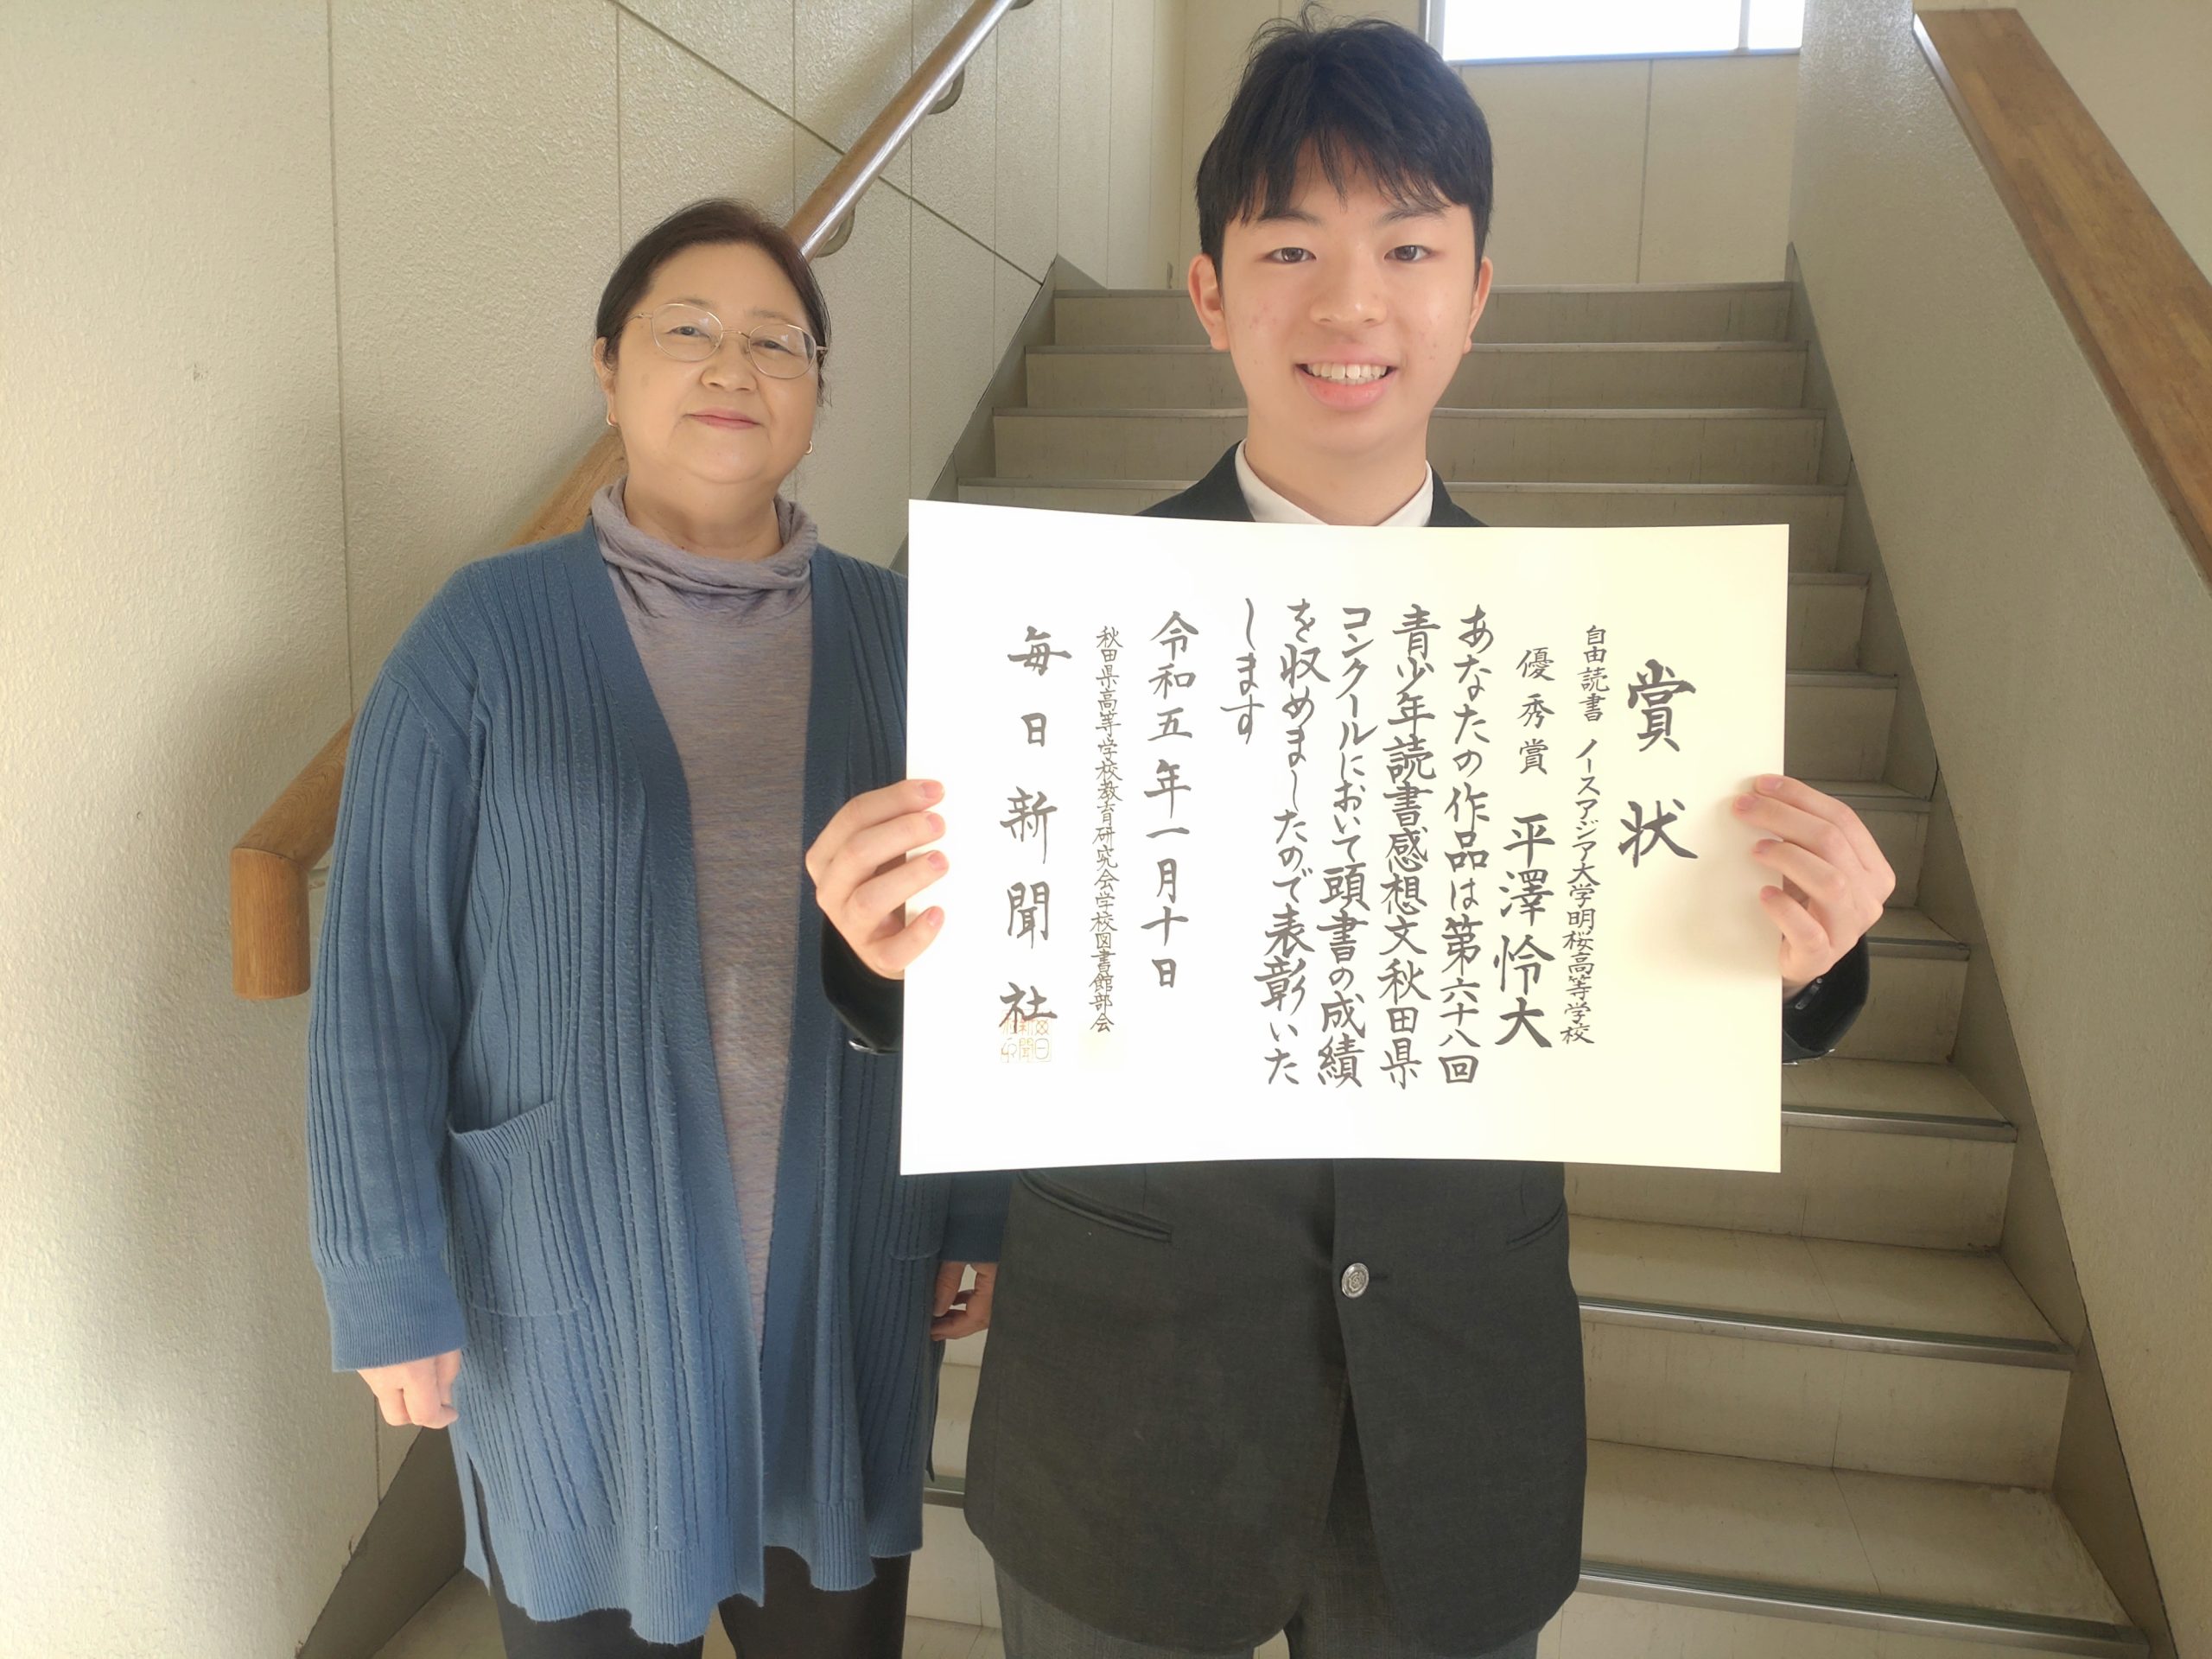 賞状
自由読書 ノースアジア大学明桜高等学校
優秀賞 平澤怜大
あなたの作品は第六十八回
青少年読書感想文秋田県
コンクールにおいて頭書の成績
を収めましたので表彰いた
します
令和五年一月十日
秋田県高等学校教育研究会学校図書館部会
毎日新聞社